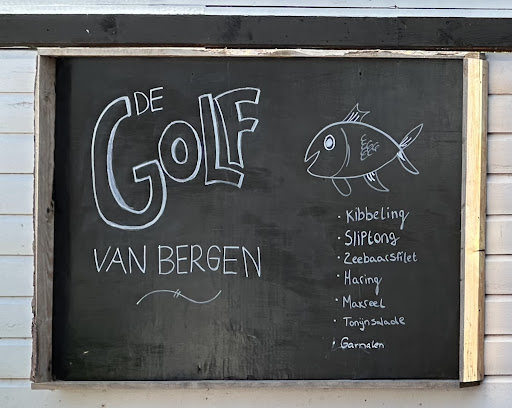 DE
GOLF
VAN BERGEN
· Kibbeling
· Sliptong
· Zeebaarsfilet
· Haring
· Makreel
· Tonijnsalade
· Garnalen